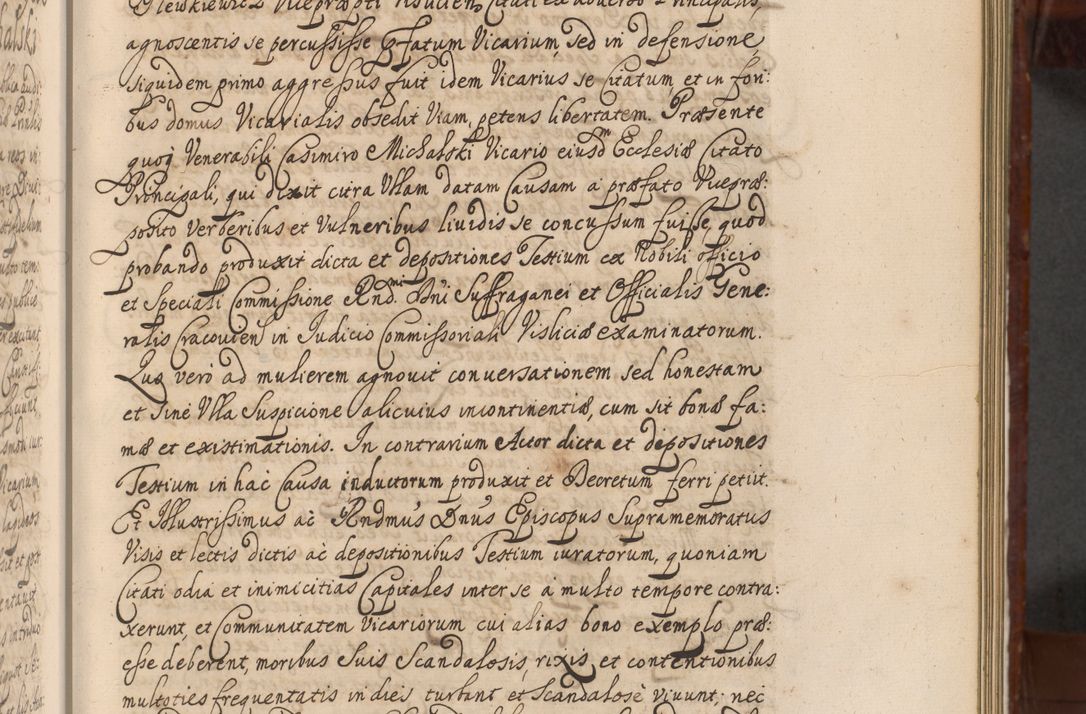 agnoscentis se percussisse pfatum Vicarium, sed in defensione,
siquidem primo aggressus fuit idem Vicarius se Citatum et in fori:
bus domus Vicarialis obsedit Viam, petens libertatem. Præsente
quoq Venerabili Casimiro Michalski Vicario eiusdm Ecclesiæ Citato
Principali, qui dixit citra Ullam datam Causam a præfato Vicepræ:
posito Verberibus et Vulneribus lividis se concussum fuisse, quod
probando produxit dicta et depositiones Testium ex Nobili officio
et Speciali Commissione Rndmi Dni Suffraganei et Officialis Gene:
ralis Cracovien in Judicio Commissoriali Visliciæ examinatorum.
Quo vero ad mulierem agnovit conversationem sed honestam
et sine Ulla Suspicione alicuius incontinentiæ, cum sit bonæ fa:
mæ et existimationis. In contrarium Actor dicta et depositiones
Testium in hac Causa inductorum produxit et Decretum ferri petiit.
Et Illustrissimus ac Rndmus Dnus Episcopus Supramemoratus
Visis et lectis dictis ac depositionibus Testium iuratorum, quoniam
Citati odia et inimicitias Capitales inter se a multo tempore contra:
xerunt, et Communitatem Vicariorum cui alias bono exemplo præ:
esse deberent, moribus suis Scandalosis, rixis et contentionibus
multoties frequentatis in dies turbant et Scandalose vivunt; nec